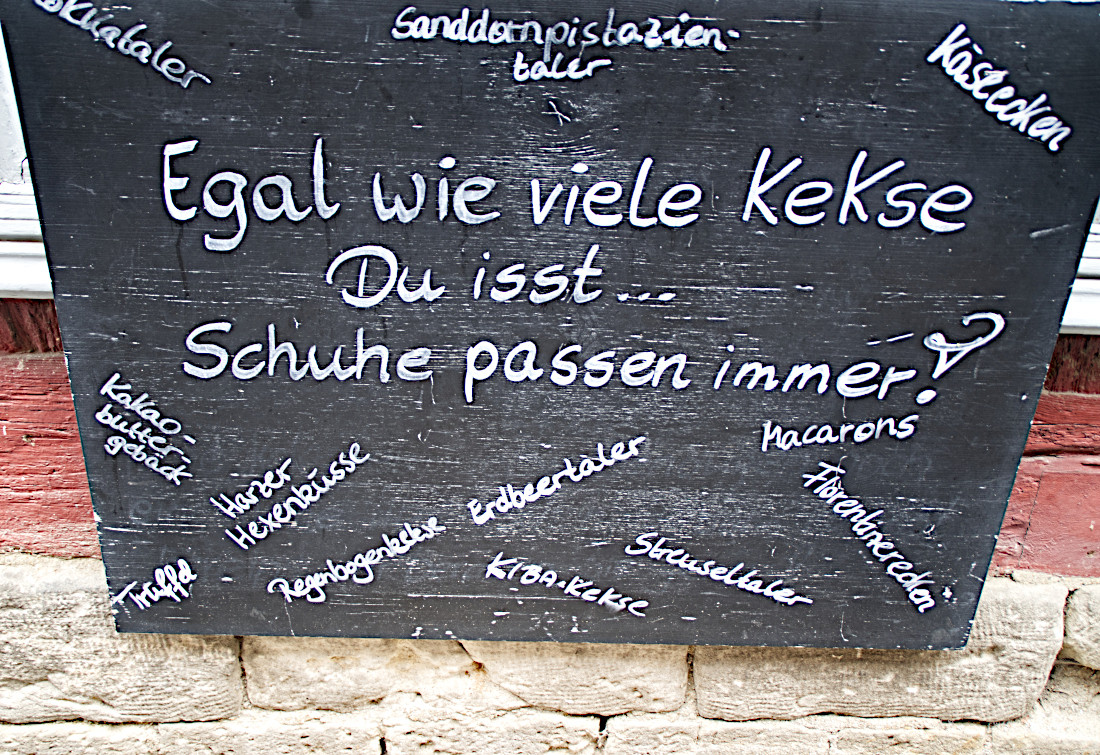 Sanddornpistazien-
taler
Käsecken
Egal wie viele Kekse
Du isst...
Schuhe passen immer!?
Kakao-
butter-
gebäck
Harzer
Hexenküsse
Erdbeertaler
Macarons
Florentinerecken
Trüffel
Regenbogenkekse
KIBA-Kekse
Streuseltaler